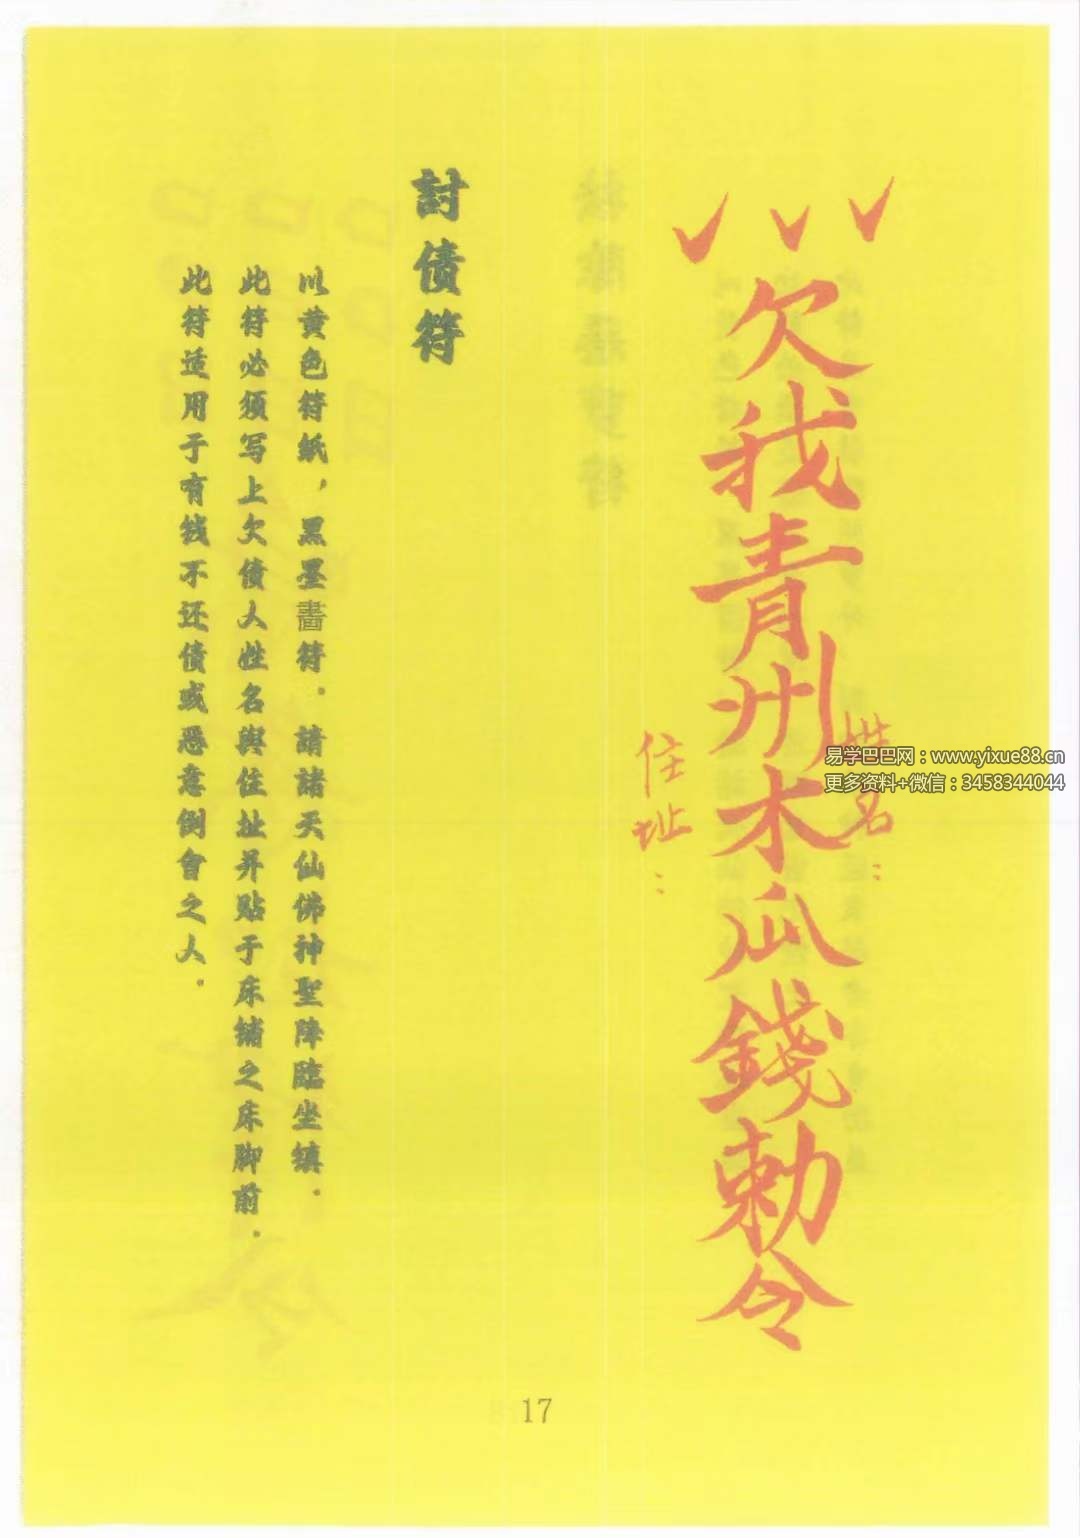 欠我青州木瓜錢勅令
姓名：
住址：
討債符
以黄色符紙，黑墨畵符．請諸天仙佛神聖降臨坐鎮．
此符必须写上欠债人姓名與住址并贴于床铺之床脚前．
此符适用于有钱不还债或恶意倒會之人．
易学巴巴网：www.yixue88.cn
更多资料+微信：3458344044
17